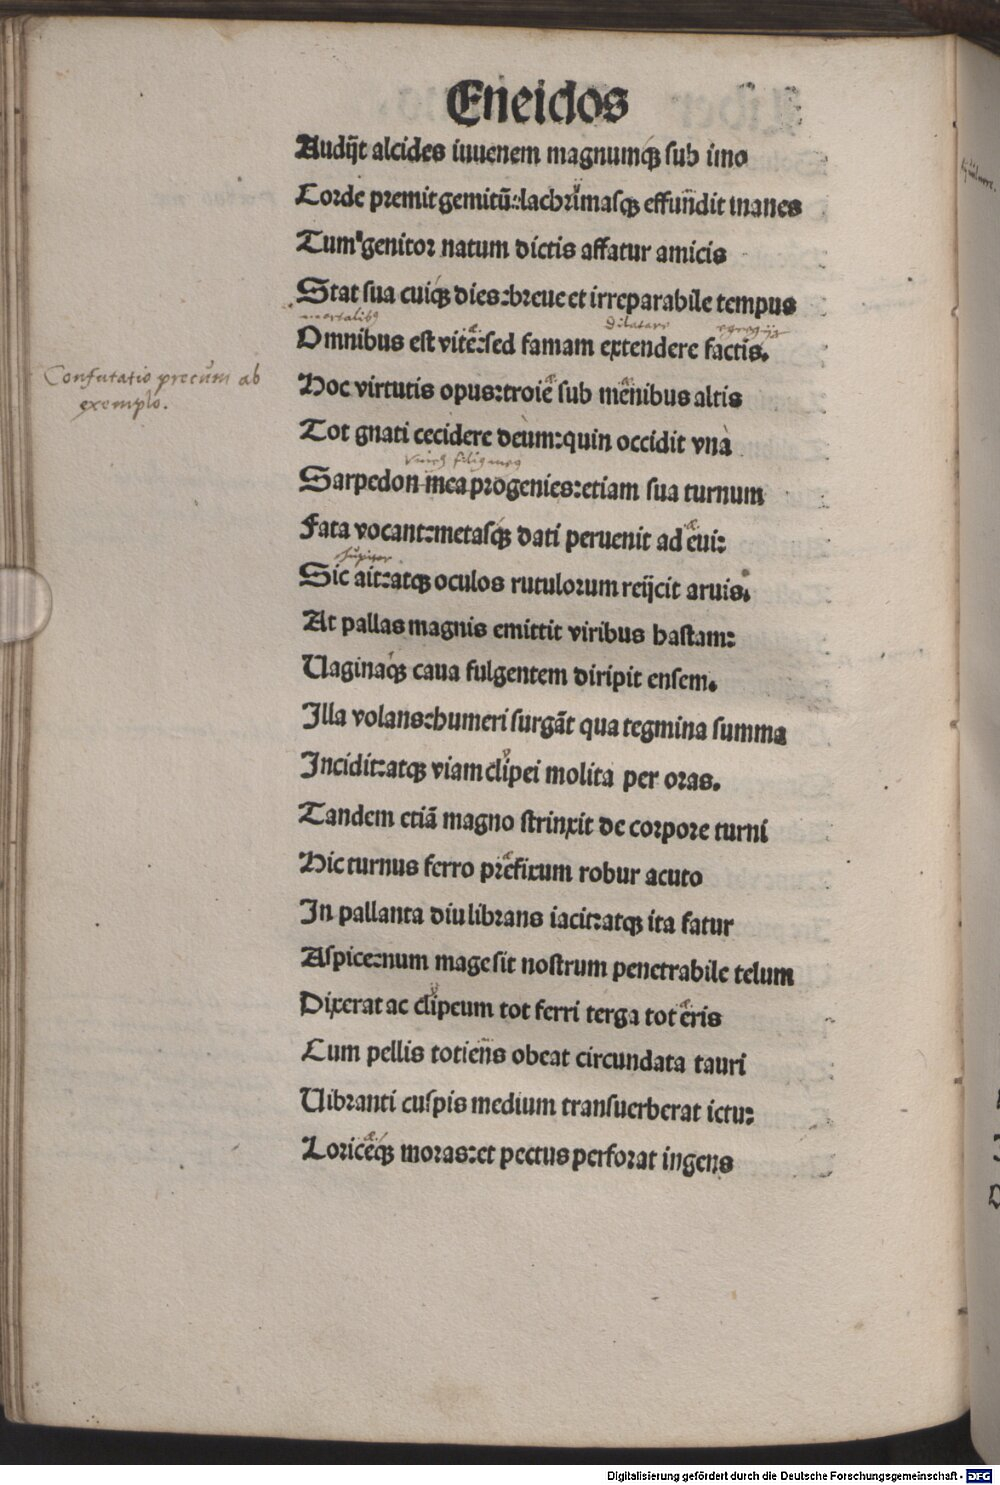 Eneidos
Audijt alcides iuuenem magnumqꝫ sub imo
Corde premit gemitū:lachrimasqꝫ effundit inanes
Tum genitor natum dictis affatur amicis
Stat sua cuiqꝫ dies:breue et irreparabile tempus
mortalibꝰ dilatare egregijs
Omnibus est vite:sed famam extendere factis.
Confutatio precum ab
exemplo.
Hoc virtutis opus:troie sub menibus altis
Tot gnati cecidere deum:quin occidit vna
filiꝰ meꝰ
Sarpedon mea progenies:etiam sua turnum
Fata vocant:metasqꝫ dati peruenit ad eui:
Jupiter
Sic ait:atqꝫ oculos rutulorum reijcit aruis.
At pallas magnis emittit viribus hastam:
Uaginaqꝫ caua fulgentem diripit ensem.
Illa volans:humeri surgāt qua tegmina summa
Incidit:atqꝫ viam clipei molita per oras.
Tandem etiā magno strinxit de corpore turni
Hic turnus ferro prefixum robur acuto
In pallanta diu librans iacit:atqꝫ ita fatur
Aspice:num mage sit nostrum penetrabile telum
Dixerat ac clipeum tot ferri terga tot eris
Cum pellis totiens obeat circundata tauri
Uibranti cuspis medium transuerberat ictu:
Loriceqꝫ moras:et pectus perforat ingens
Digitalisierung gefördert durch die Deutsche Forschungsgemeinschaft - DFG